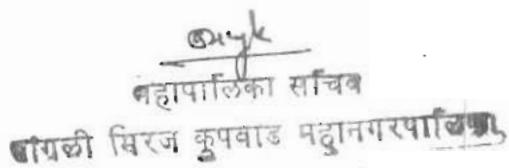 महापालिका सचिव
सांगली मिरज कुपवाड महानगरपालिका